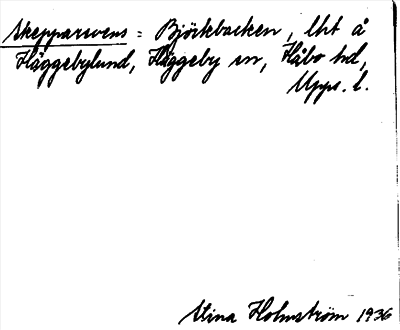 Skepparsvens = Björkbacken, lht å
Häggebylund, Häggeby sn, Håbo hd,
Upps. l.
Stina Holmström 1936